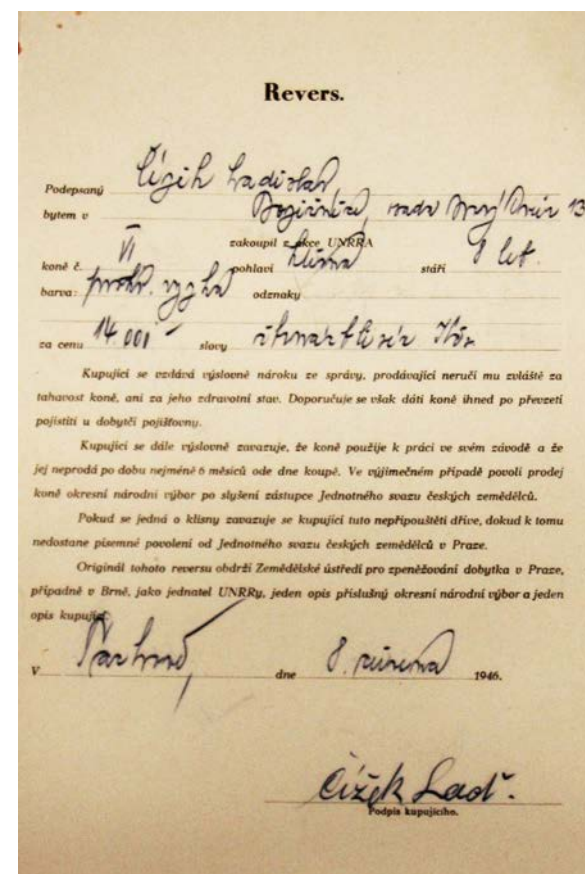 Revers.
Podepsaný Čížek Ladislav
bytem v nade Nový Dvůr 13
zakoupil z akce UNRRA
koně č. VI pohlaví klisna stáří 8 let.
barva: odznaky
za cenu 14.000 slovy čtrnáct tisíc Kčs
Kupující se vzdává výslovně nároku ze správy, prodávající neručí mu zvláště za
tahavost koně, ani za jeho zdravotní stav. Doporučuje se však dáti koně ihned po převzetí
pojistiti u dobytčí pojišťovny.
Kupující se dále výslovně zavazuje, že koně použije k práci ve svém závodě a že
jej neprodá po dobu nejméně 6 měsíců ode dne koupě. Ve výjimečném případě povolí prodej
koně okresní národní výbor po slyšení zástupce Jednotného svazu českých zemědělců.
Pokud se jedná o klisny zavazuje se kupující tuto nepřipouštěti dříve, dokud k tomu
nedostane písemné povolení od Jednotného svazu českých zemědělců v Praze.
Originál tohoto reversu obdrží Zemědělské ústředí pro zpeněžování dobytka v Praze,
případně v Brně, jako jednatel UNRRy, jeden opis příslušný okresní národní výbor a jeden
opis kupující.
V dne 8. února 1946.
Čížek Lad.
Podpis kupujícího.